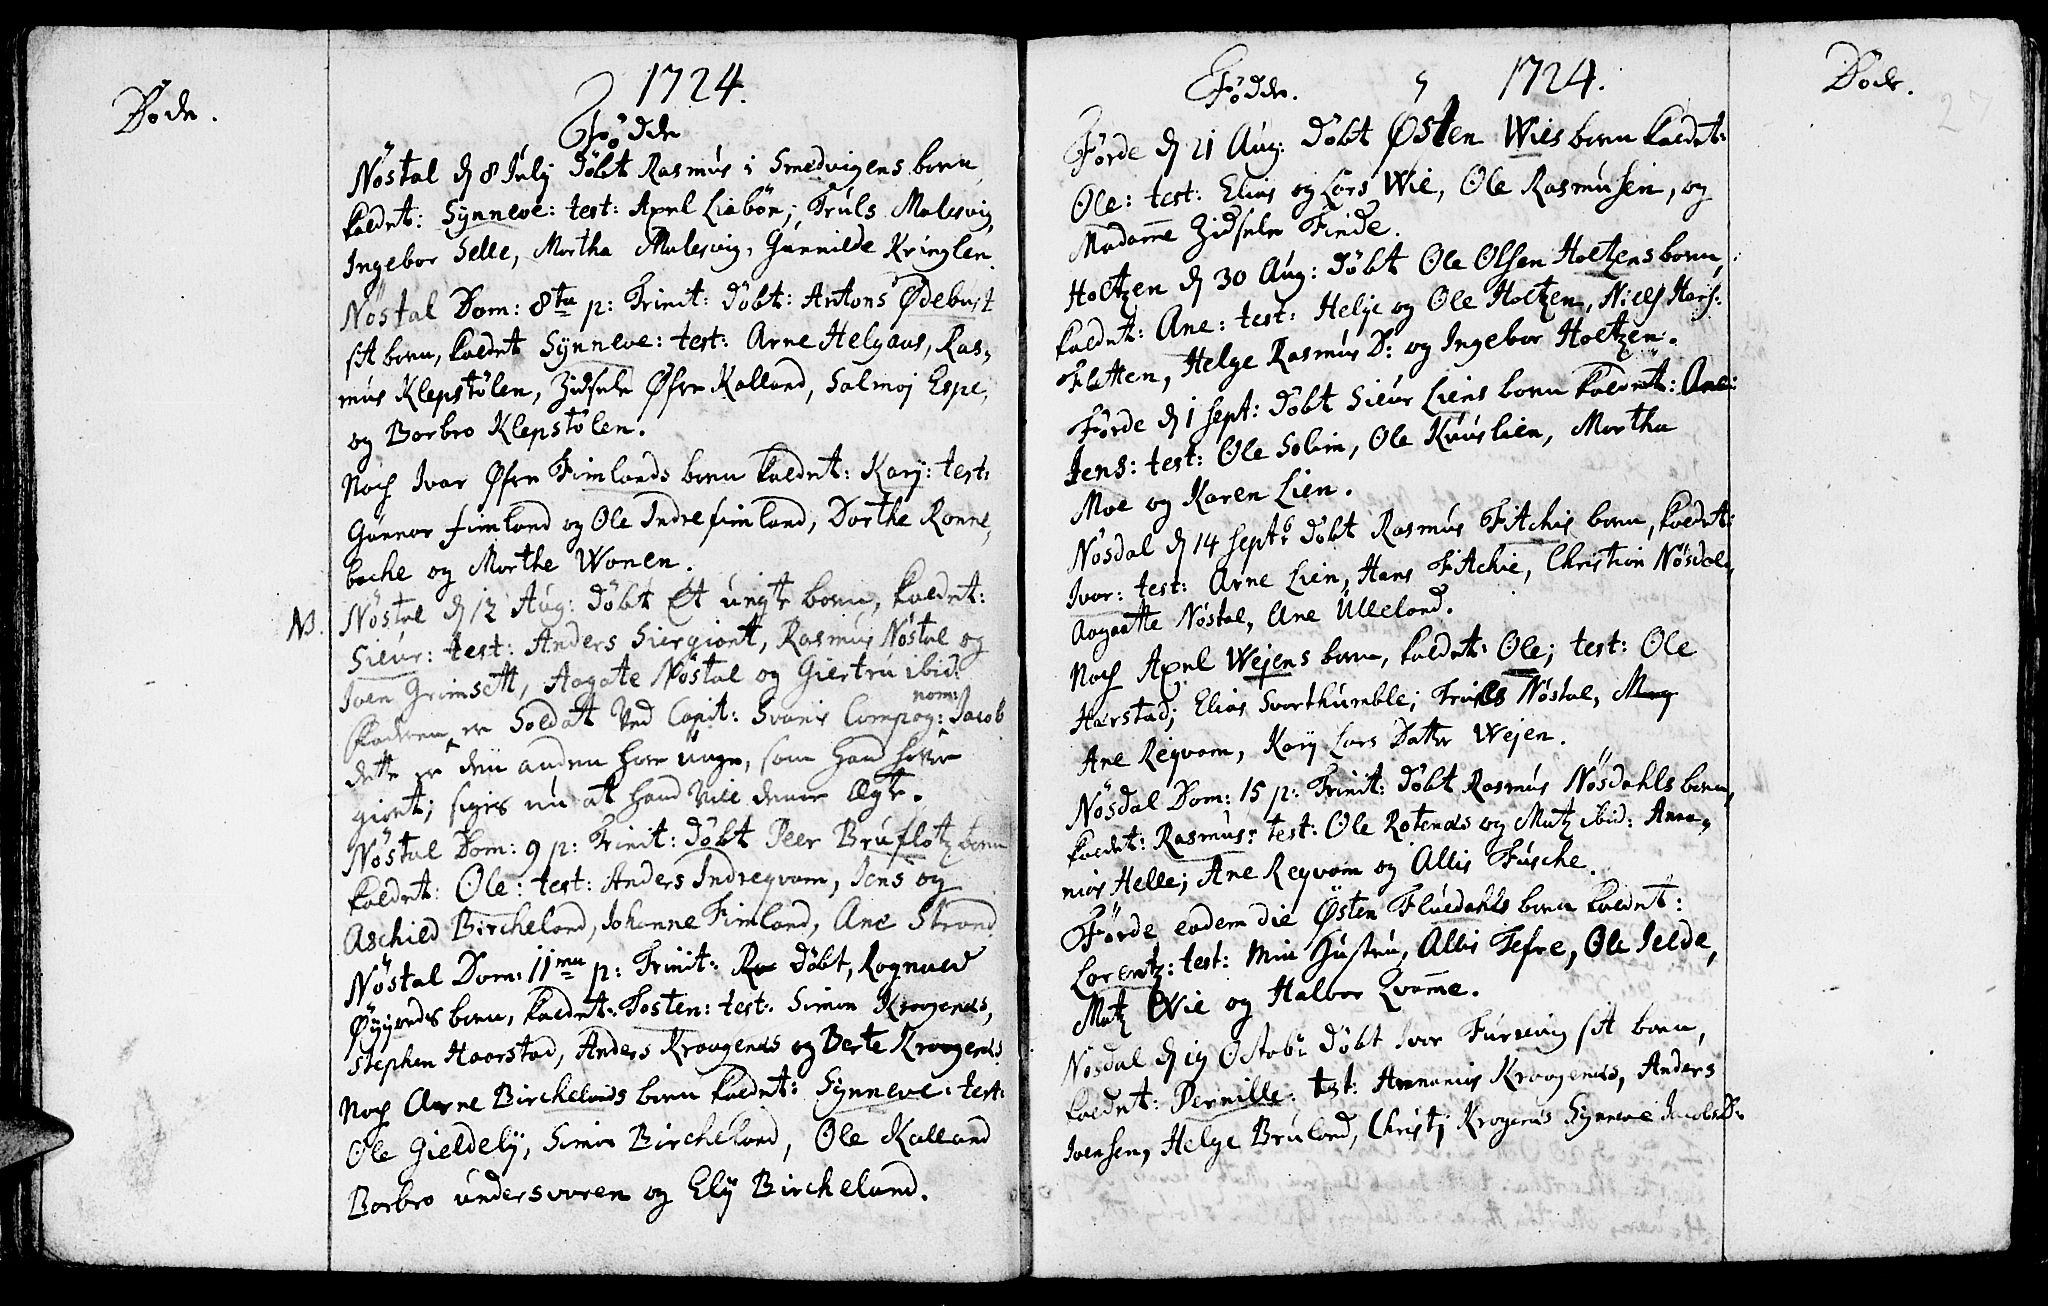 Døde.
1724.
Fødde
Nøstal d 8 Julij Døbt Rasmus i Smedvigens barn
kaldet: Synneve: test: Axel Liabøn; Truls Malesvig,
Ingebor Selle, Martha Malesvig, Gunnilde Kringlen.
Nøstal Dom: 8te p: Trinit: Døbt: Antons Ødebust
sit barn, kaldet Synneve: test: Arne Helgaas, Ras,
mus Klepstølen, Zidsele Øfre Kalland, Salmoj Espe,
og Barbro Klepstølen.
Noch Ivar Øfre Fimlands barn kaldet: Karj: test:
Gunnar fimland og Ole Indrefimland, Dorthe Rønne,
bache og Marthe Wonen.
NB. Nøstal d 12 Aug: Døbt Et uægte barn, kaldet:
Sieur: test: Anders Siergiont, Rasmus Nøstal og
Joen Grimsett, Aagate Nøstal og Giertru ibid:
faderen er Soldat ved Capit: Svanis Compag: nom: Jacob
dette er den anden hore unge, som hand hafver
giort; siges nu at hand vill denne ægte.
Nøstal Dom: 9 p: Trinit: Døbt Peer Bruflotz barn
kaldet: Ole: test: Anders Indreqvam, Jens og
Aschild Bircheland, Johanne Fimland, Ane Strand
Nøstal Dom: 11mu p: Trinit: Ra Døbt, Rognald
Øygards barn, kaldet: Tosten: test: Simon Kraagenæs,
Stephen Haarstad, Anders Kraagenæs og Berte Kraagenæs
Noch Aarne Birchelands barn kaldet: Synneve: test:
Ole Gieldely, Simon Bircheland, Ole Kalland
Barbro undersaaren og Elj Bircheland.
Fødde. 1724.
Førde d 21 Aug: Døbt Østen Wies barn kaldet:
Ole: test: Elias og Lars Wie, Ole Rasmusen, og
Madame Zidsele Finde.
Holtzen d 30 Aug: Døbt Ole Olsen Holtzens barn,
kaldet: Ane: test: Helje og Ole Holtzen, Niels Hans:
Fletten, Helge Rasmus D: og Ingebor Holtzen.
Førde d 1 Sept: Døbt Sieur Liens barn kaldet: Ane:
Jens: test: Ole Solim, Ole Kuuslien, Martha
Moe og Karen Lien.
Nøsdal d 14 Septbr Døbt Rasmus Fitchis barn, kaldet:
Ivar: test: Arne Lien, Hans Fitchie, Christian Nøsdal,
Aagaatte Nøstal, Ane Ulleland.
Noch Axel Wejens barn, kaldet: Ole; test: Ole
Harstad; Elias Svorthumble; Truls Nøstal, Mag
Ane Reqvam, Karj Lars Datter Wejen.
Nøsdal Dom: 15 p: Trinit: Døbt Rasmus Nøsdahls barn,
kaldet: Rasmus: test: Ole Rotenæs og Matz ibid: Anna,
nias Helle; Ane Reqvam og Allis Fusche.
Førde eodem die Østen Fluedahls barn kaldet:
Lorentz: test: min Hustru, Allis Tefre, Ole Jelde,
Matz Wie og Halvor Qvamme.
Nøsdal d 19 Octobr Døbt Ivar Furevig sit barn,
kaldet: Pernille: test: Annanias Kraagenæs, Anders
Joensen, Helge Bruland, Christj Kragenæs Synneve Jacobs D:
Døde.
27